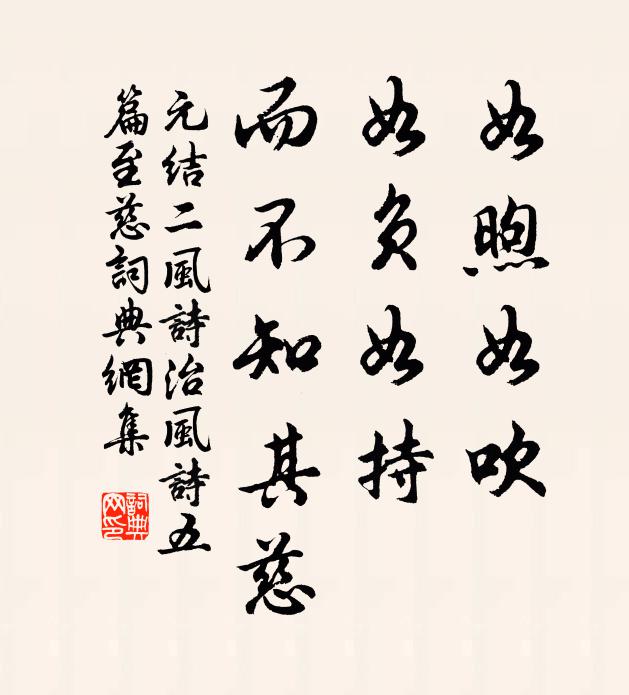 如煦如吹
如負如持
而不知其慈
元结二風詩治風詩五
篇至慈詞典網集
詞典
网印